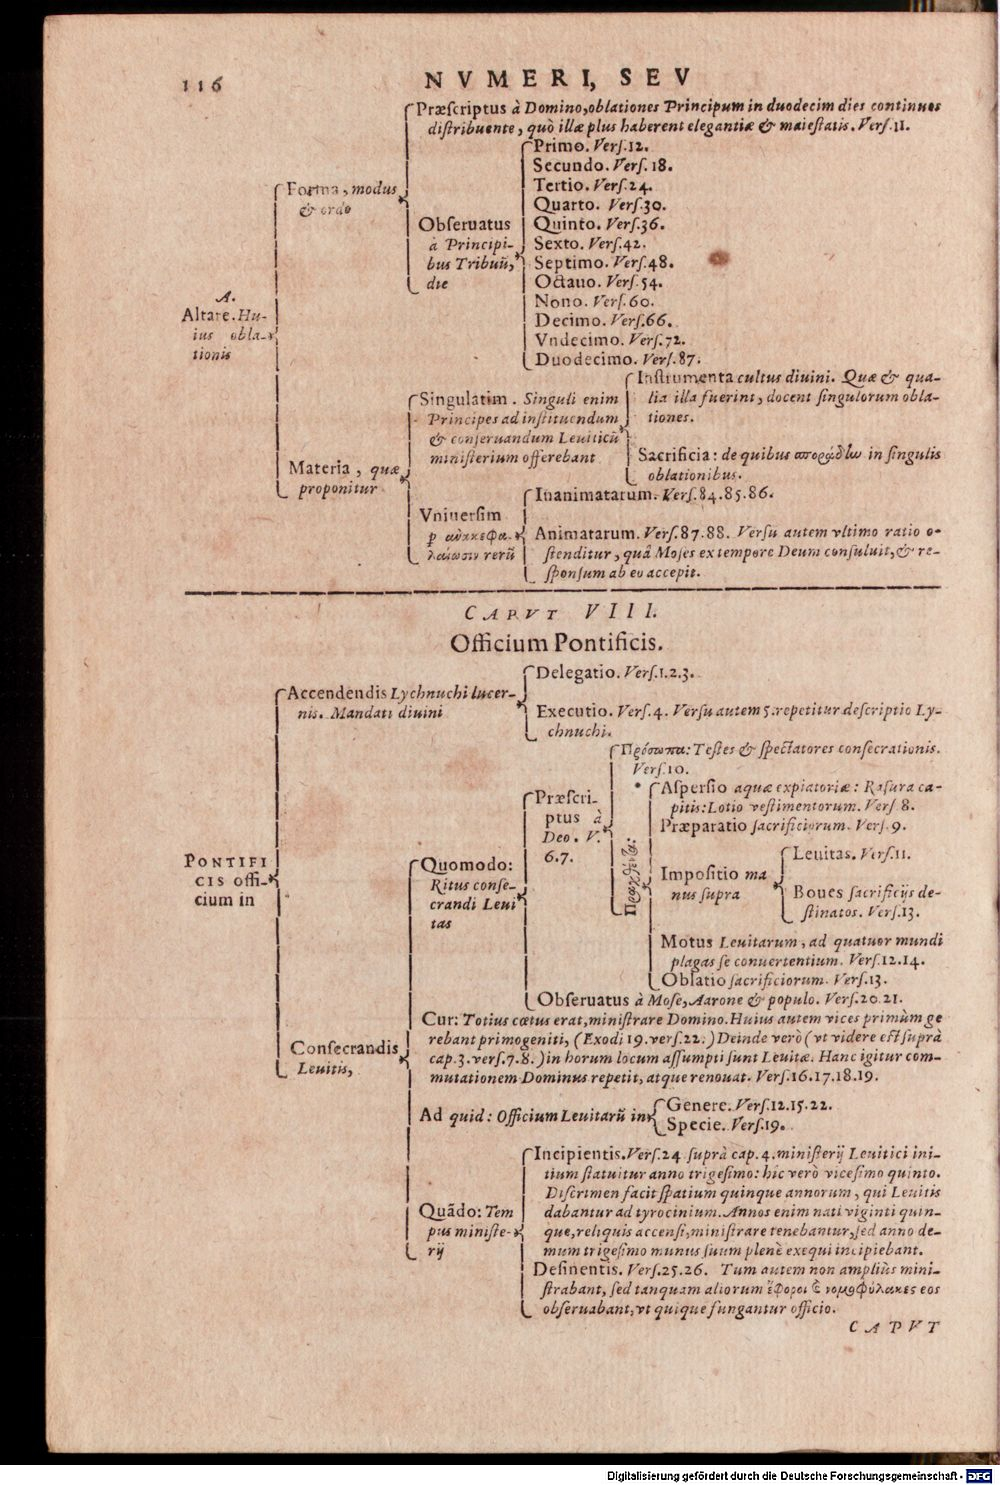 116
NVMERI, SEV
Præſcriptus à Domino, oblationes Principum in duodecim dies continuos
diſtribuente, quò illæ plus haberent elegantiæ & maieſtatis. Verſ.11.
Forma, modus
& ordo
Obſeruatus
à Principi-
bus Tribuũ,
die
Primo. Verſ.12.
Secundo. Verſ.18.
Tertio. Verſ.24.
Quarto. Verſ.30.
Quinto. Verſ.36.
Sexto. Verſ.42.
Septimo. Verſ.48.
Octauo. Verſ.54.
Nono. Verſ.60.
Decimo. Verſ.66.
Vndecimo. Verſ.72.
Duodecimo. Verſ.87.
A.
Altare. Hu-
ius obla-
tionis
Materia, quæ
proponitur
Singulatim. Singuli enim
Principes ad inſtituendum
& conſeruandum Leuiticũ
miniſterium offerebant
Inſtrumenta cultus diuini. Quæ & qua-
lia illa fuerint, docent ſingulorum obla-
tiones.
Sacrificia: de quibus in ſingulis
oblationibus.
Vniuerſim
rerũ
Inanimatarum. Verſ.84.85.86.
Animatarum. Verſ.87.88. Verſu autem vltimo ratio o-
ſtenditur, quâ Moſes ex tempore Deum conſuluit, & re-
ſponſum ab eo accepit.
CAPVT VIII.
Officium Pontificis.
PONTIFI
CIS offi-
cium in
Accendendis Lychnuchi lucer-
nis. Mandati diuini
Delegatio. Verſ.1.2.3.
Executio. Verſ.4. Verſu autem 5. repetitur deſcriptio Ly-
chnuchi.
Conſecrandis
Leuitis,
Quomodo:
Ritus conſe-
crandi Leui
tas
Præſcri-
ptus à
Deo. V.
6.7.
Πρόσωπα: Teſtes & ſpectatores conſecrationis.
Verſ.10.
Πραχθέντα:
Aſperſio aquæ expiatoriæ: Raſura ca-
pitis: Lotio veſtimentorum. Verſ 8.
Præparatio ſacrificiorum. Verſ.9.
Impoſitio ma
nus ſupra
Leuitas. Verſ.11.
Boues ſacrificijs de-
ſtinatos. Verſ.13.
Motus Leuitarum, ad quatuor mundi
plagas ſe conuertentium. Verſ.12.14.
Oblatio ſacrificiorum. Verſ.13.
Obſeruatus à Moſe, Aarone & populo. Verſ.20.21.
Cur: Totius cœtus erat, miniſtrare Domino. Huius autem vices primùm ge
rebant primogeniti, (Exodi 19. verſ.22.) Deinde verò (vt videre eſt ſuprà
cap.3. verſ.7.8.) in horum locum aſſumpti ſunt Leuitæ. Hanc igitur com-
mutationem Dominus repetit, atque renouat. Verſ.16.17.18.19.
Ad quid: Officium Leuitarũ in
Genere. Verſ.12.15.22.
Specie. Verſ.19.
Quãdo: Tem
pus miniſte-
rij
Incipientis. Verſ.24 ſuprà cap.4. miniſterij Leuitici ini-
tium ſtatuitur anno trigeſimo: hic verò viceſimo quinto.
Diſcrimen facit ſpatium quinque annorum, qui Leuitis
dabantur ad tyrocinium. Annos enim nati viginti quin-
que, reliquis accenſi, miniſtrare tenebantur, ſed anno de-
mum trigeſimo munus ſuum plenè exequi incipiebant.
Deſinentis. Verſ.25.26. Tum autem non ampliùs mini-
ſtrabant, ſed tanquam aliorum ἔφοροι & νομοφύλακες eos
obſeruabant, vt quique fungantur officio.
CAPVT
Digitalisierung gefördert durch die Deutsche Forschungsgemeinschaft - DFG